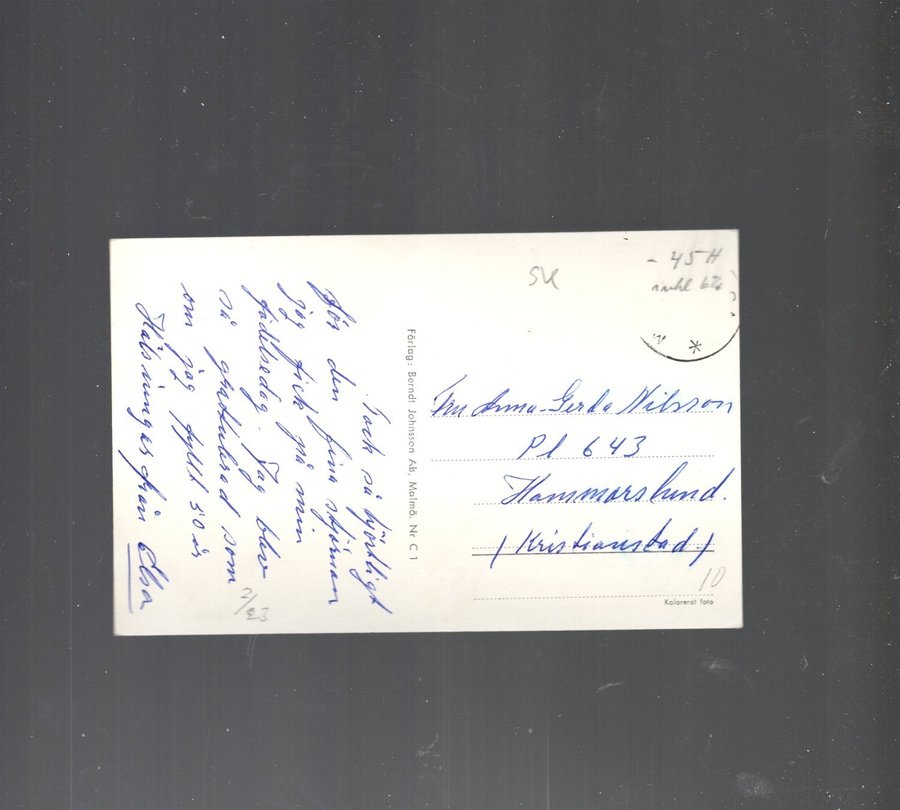 Tack så hjärtligt
för den fina stjärnan
jag fick på min
födelsedag. Jag blev
så gratulerad som
om jag fyllt 50 år
Hälsningar från Elsa
2/23
Förlag: Berndt Johnsson Ab, Malmö. Nr C 1
SK
- 45 H
Fru Anna-Gerda Nilsson
Pl 643
Hammarslund.
(Kristianstad)
10
Kolorerat foto